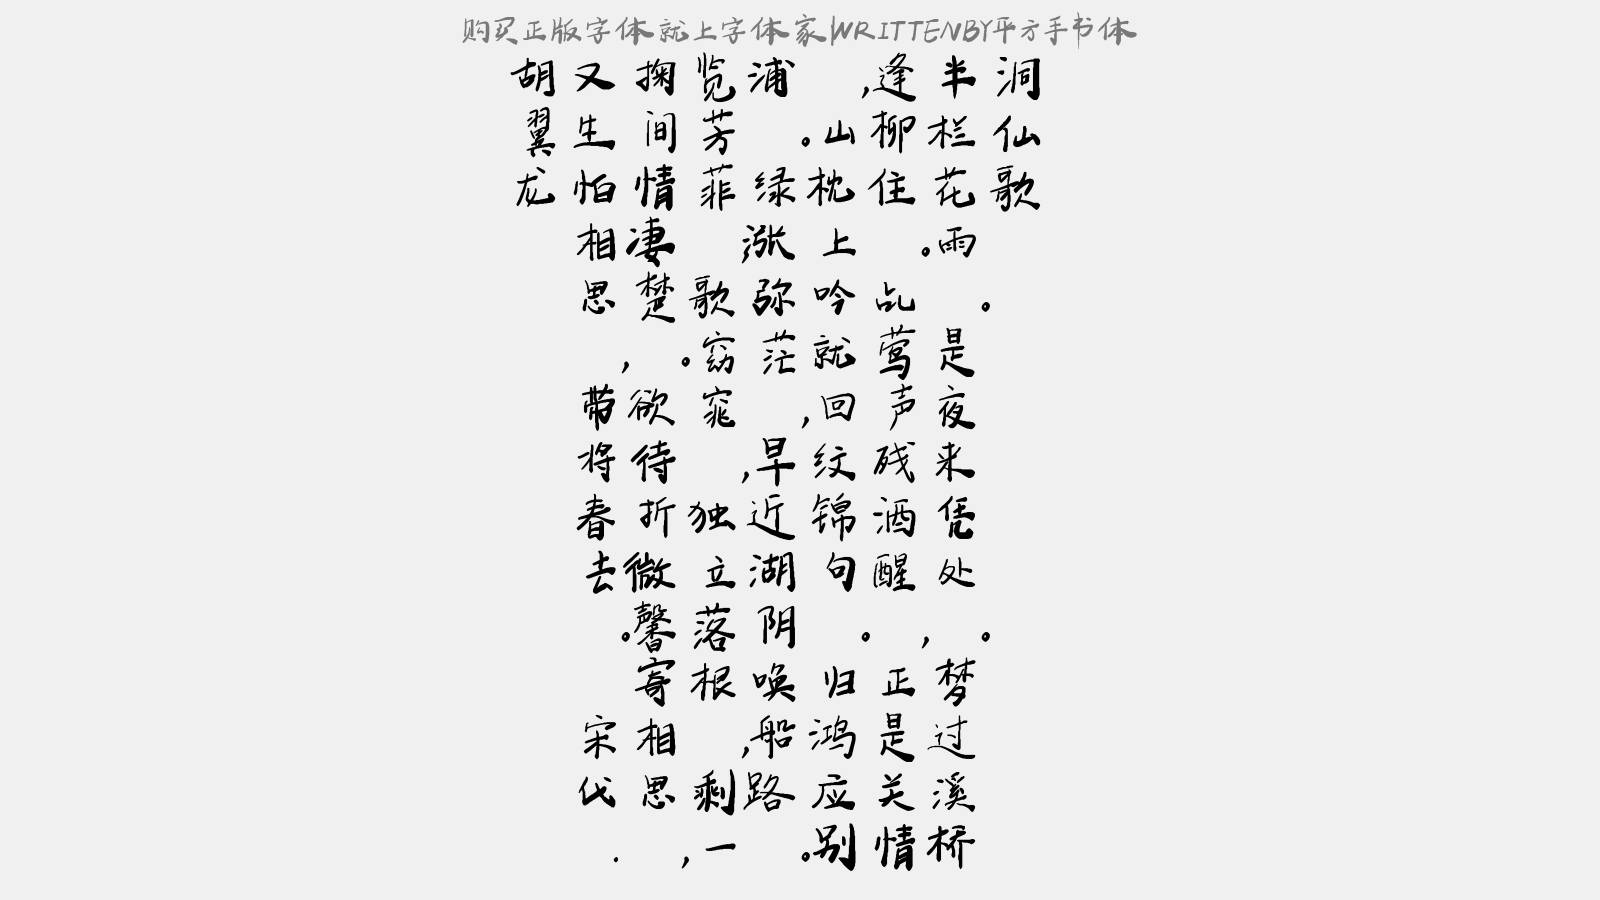 购买正版字体就上字体家WRITTENBY平方手书体
洞仙歌
半栏花雨。是夜来凭处。梦过溪桥
逢柳住。乩莺声残酒醒,正是关情
,山枕上吟就回纹锦句。归鸿应别
浦。绿涨弥茫,早近湖阴唤船路。
览芳菲 歌窈窕,独立落根,剩一
掬间情凄楚。欲待折微馨寄相思,
又生怕相思,带将春去。宋代·
胡翼龙